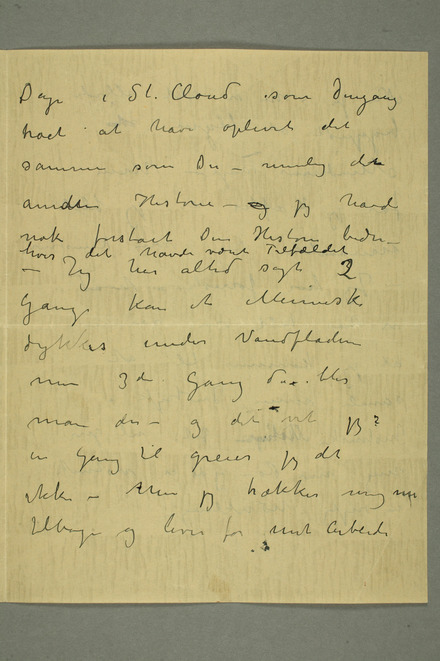 Dage i St. Cloud som Dengang
troet at have oplevet det
samme som Du – nemlig den
anden Historie – og jeg havde
nok forstaaet Din Historie bedre –
hvis det havde været Tilfældet
– Jeg har altid sagt 2
Gange kan et Menneske
dykkes under Vandfladen
men 3de Gang da blir
man der – og det vet jeg
en Gang til greier jeg det
ikke – Men jeg trækker mig nu
tilbage og lever for mit Arbeide